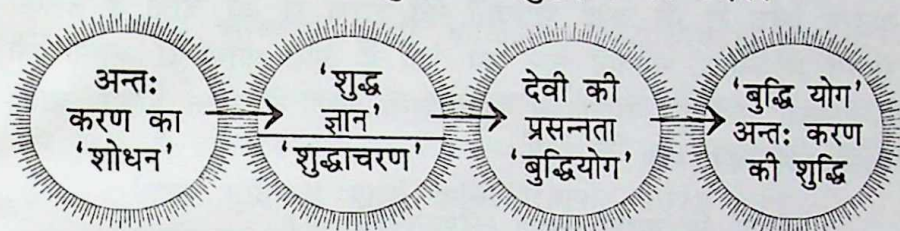 अन्तः
करण का
'शोधन'
'शुद्ध
ज्ञान'
'शुद्धाचरण'
देवी की
प्रसन्नता
'बुद्धियोग'
'बुद्धि योग'
अन्तः करण
की शुद्धि